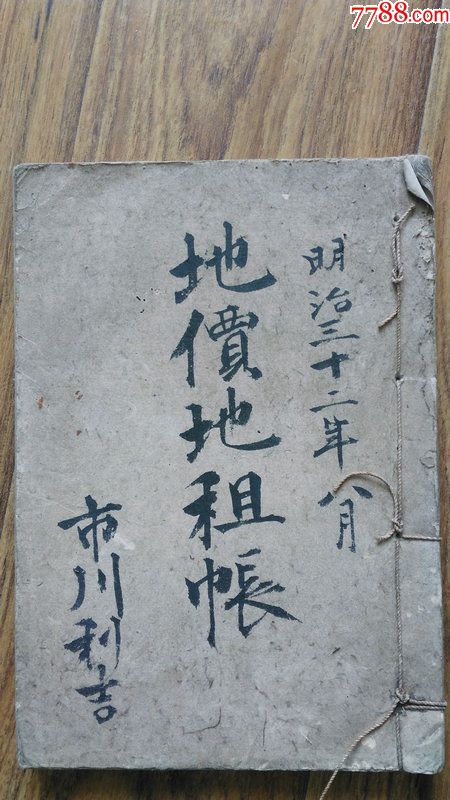 7788.com
明治三十二年八月
地價地租帳
市川利吉